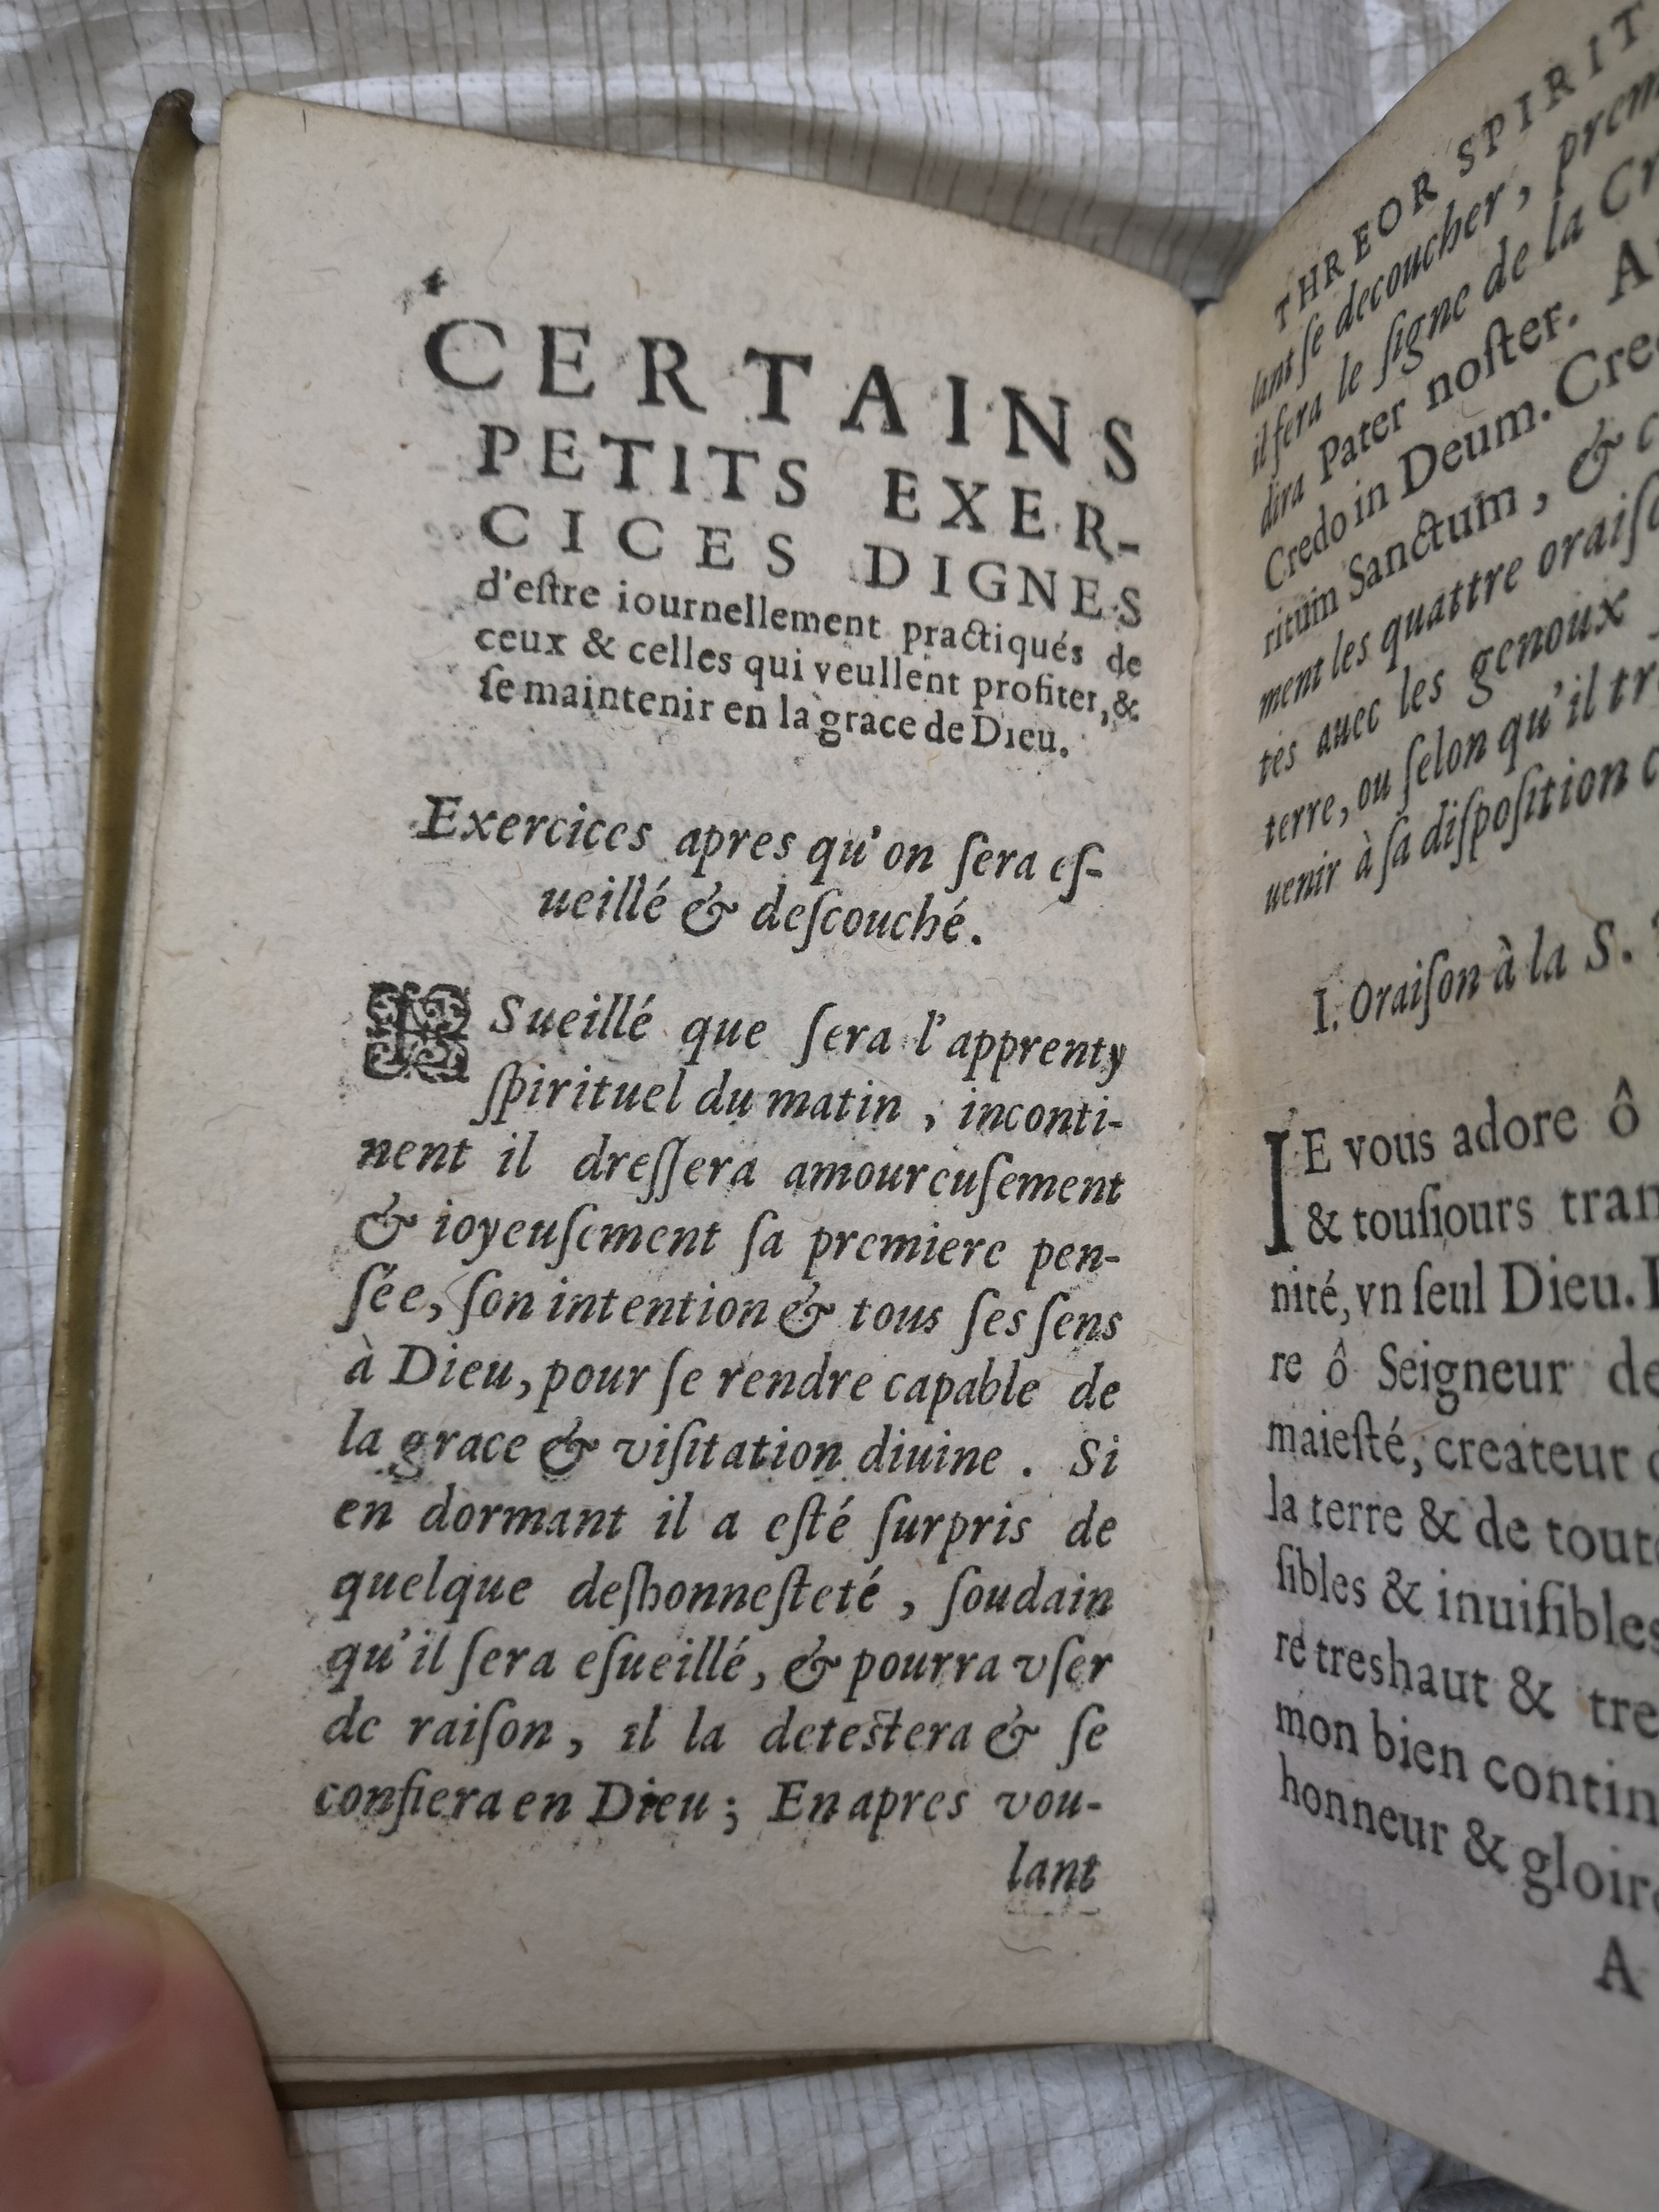 CERTAINS
PETITS EXER-
CICES DIGNES
d'eſtre iournellement practiqués de
ceux & celles qui veullent profiter, &
ſe maintenir en la grace de Dieu.
Exercices apres qu'on ſera eſ-
ueillé & deſcouché.
ESueillé que ſera l'apprenty
ſpirituel du matin, inconti-
nent il dreſſera amoureuſement
& ioyeuſement ſa premiere pen-
ſée, ſon intention & tous ſes ſens
à Dieu, pour ſe rendre capable de
la grace & viſitation diuine. Si
en dormant il a eſté ſurpris de
quelque deſhonneſteté, ſoudain
qu'il ſera eſueillé, & pourra vſer
de raiſon, il la deteſtera & ſe
confiera en Dieu; En apres vou-
lant
THREOR SPIRIT
lant ſe decoucher, prem
il fera le ſigne de la Cr
dira Pater noſter. A
Credo in Deum. Cre
ritum Sanctum, &
ment les quattre oraiſ
tes auec les genoux
terre, ou ſelon qu'il tr
uenir à ſa diſpoſition
I. Oraiſon à la S.
IE vous adore ô
& touſiours tran
nité, vn ſeul Dieu.
re ô Seigneur de
maieſté, createur
la terre & de tout
ſibles & inuiſibles
re treshaut & tre
mon bien contin
honneur & gloire
A